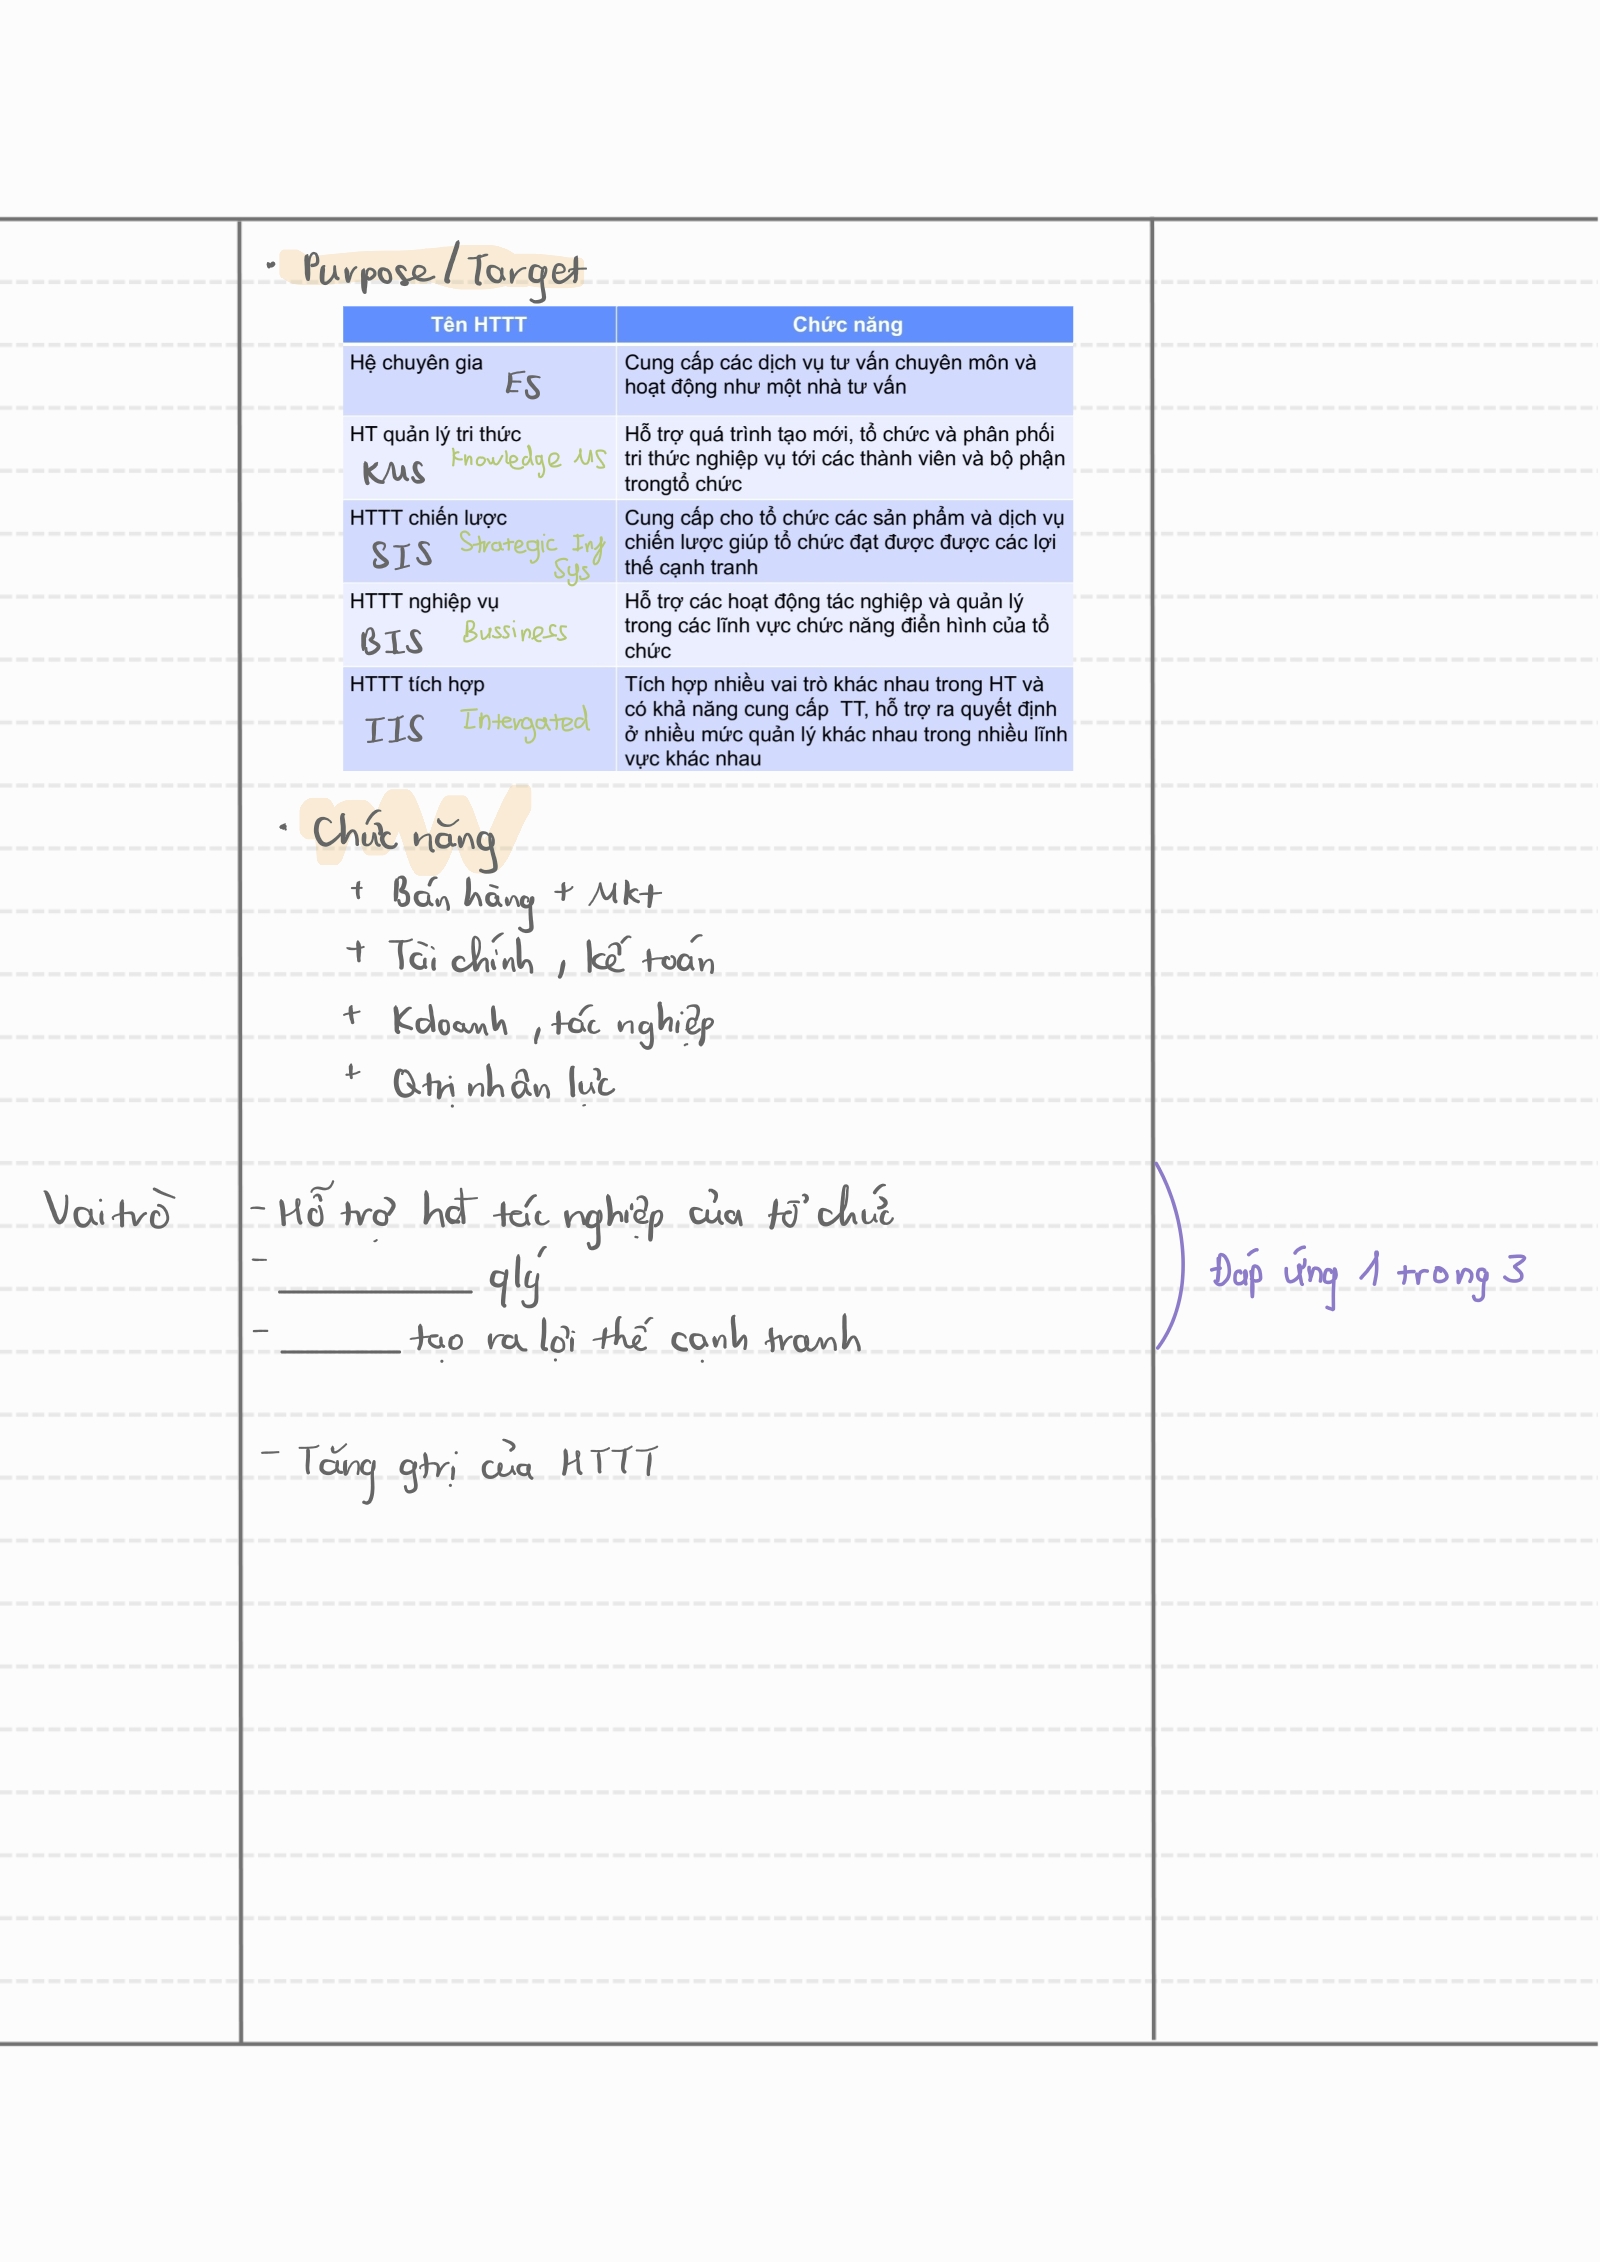 · Purpose / Target
Tên HTTT
Chức năng
Hệ chuyên gia
ES
Cung cấp các dịch vụ tư vấn chuyên môn và
hoạt động như một nhà tư vấn
HT quản lý tri thức
KMS Knowledge MS
Hỗ trợ quá trình tạo mới, tổ chức và phân phối
tri thức nghiệp vụ tới các thành viên và bộ phận
trongtổ chức
HTTT chiến lược
SIS Strategic Inf
Sys
Cung cấp cho tổ chức các sản phẩm và dịch vụ
chiến lược giúp tổ chức đạt được được các lợi
thế cạnh tranh
HTTT nghiệp vụ
BIS Bussiness
Hỗ trợ các hoạt động tác nghiệp và quản lý
trong các lĩnh vực chức năng điển hình của tổ
chức
HTTT tích hợp
IIS Intergated
Tích hợp nhiều vai trò khác nhau trong HT và
có khả năng cung cấp TT, hỗ trợ ra quyết định
ở nhiều mức quản lý khác nhau trong nhiều lĩnh
vực khác nhau
· Chức năng
+ Bán hàng + Mkt
+ Tài chính, kế toán
+ Kdoanh, tác nghiệp
+ Qtrị nhân lực
Vai trò
- Hỗ trợ hđ tác nghiệp của tổ chức
- ________ qlý
- _____ tạo ra lợi thế cạnh tranh
Đáp ứng 1 trong 3
- Tăng gtrị của HTTT